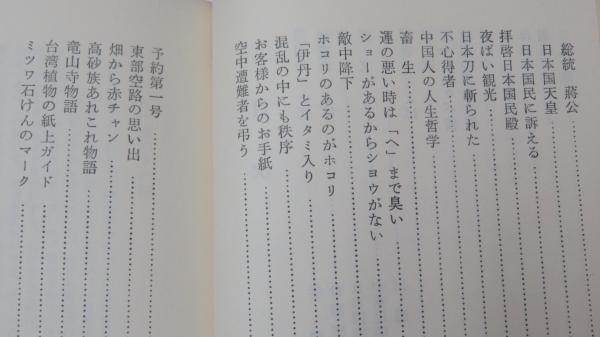 総統 蔣公
日本国天皇
日本国民に訴える
拝啓日本国民殿
夜ばい観光
日本刀に斬られた
不心得者
中国人の人生哲学
畜生
運の悪い時は「へ」まで臭い
ショーがあるからショウがない
敵中降下
ホコリのあるのがホコリ
「伊丹」とイタミ入り
混乱の中にも秩序
お客様からのお手紙
空中遭難者を弔う
予約第一号
東部空路の思い出
畑から赤チャン
高砂族あれこれ物語
竜山寺物語
台湾植物の紙上ガイド
ミツワ石けんのマーク